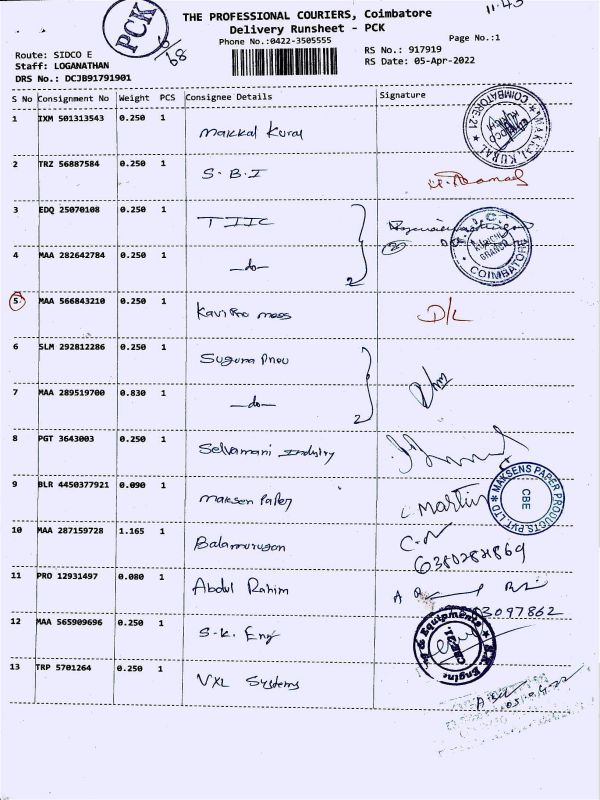 11.45
THE PROFESSIONAL COURIERS, Coimbatore
Delivery Runsheet - PCK
Phone No.:0422-3505555
Page No.:1
PCK
68
Route: SIDCO E
Staff: LOGANATHAN
DRS No.: DCJB91791901
RS No.: 917919
RS Date: 05-Apr-2022
S No Consignment No Weight PCS Consignee Details Signature
1 IXM 501313543 0.250 1 Makkal Kural
MAKKAL KURAL COIMBATORE-21
2 TRZ 56887584 0.250 1 S.B.I
3 EDQ 25070108 0.250 1 TIIC
KURICHI BRANCH COIMBATORE
4 MAA 282642784 0.250 1 —do— 2
5 MAA 566843210 0.250 1 Kavipro mess D/L
6 SLM 292812286 0.250 1 Suguna Pneu
7 MAA 289519700 0.830 1 —do— 2
8 PGT 3643003 0.250 1 Selvamani Industry
9 BLR 4450377921 0.090 1 Maksen Paper L Martin
MAKSENS PAPER PRODUCTS.PVT LTD CBE
10 MAA 287159728 1.165 1 Balamurugan
11 PRO 12931497 0.080 1 Abdul Rahim
12 MAA 565909696 0.250 1 S.K. Eng
S.K. Engine & Equipments
13 TRP 5701264 0.250 1 VXL Systems